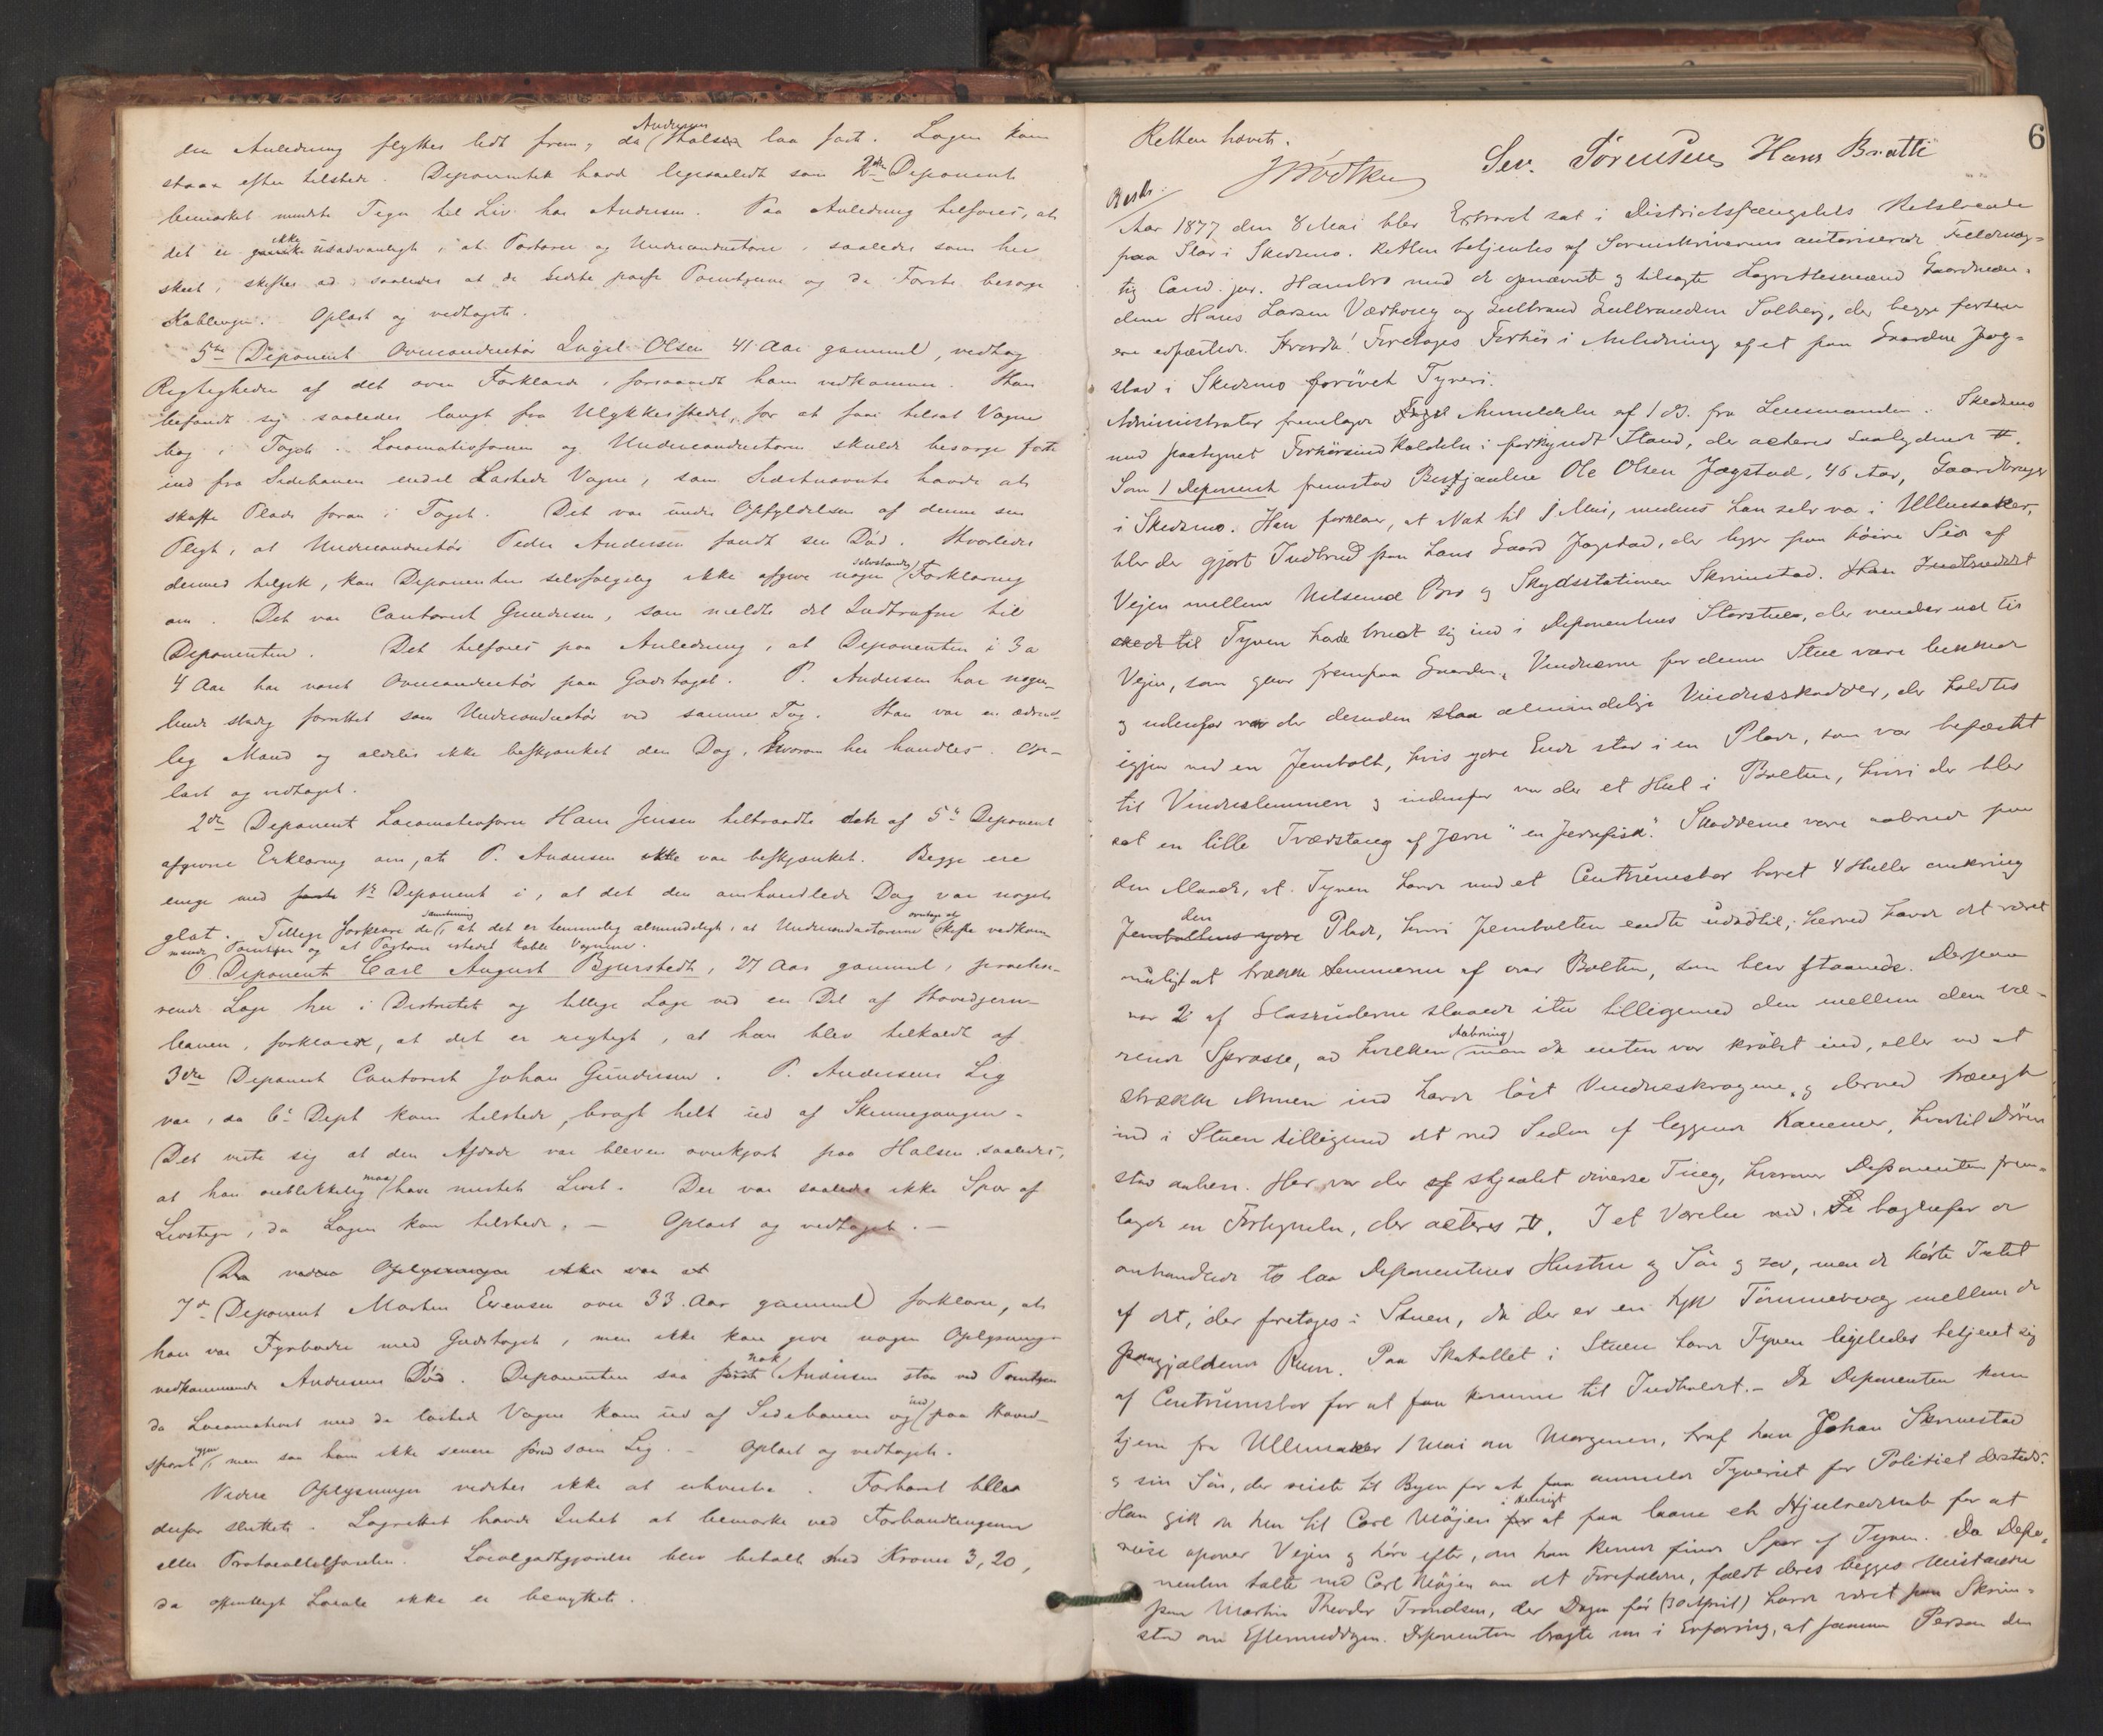 den Anledning flyttes lidt frem, da Andersens Hals laa fast. Lægen kom
strax efter tilstede. Deponenten havde ligesaalidt som 2den Deponent
bemærket mindste Tegn til Liv hos Andersen. Paa Anledning tilføies, at
det er ikke usædvanligt, at Portører og Underconductører, saaledes som her
skeet, skiftes ad saaledes at de Sidste passe Pointserne og de Første besørge
Koblingen. Oplæst og vedtaget.
5te Deponent Overconductør Engel Olsen 41 Aar gammel, vedtog
Rigtigheden af det oven Forklarede, forsaavidt ham vedkommer. Han
befandt sig saaledes langt fra Ulykkesstedet, for at faae tilsat Vogne
bag i Toget. Locomotivføreren og Underconductøren skulde besørge ført
ind fra Sidebanen endel Lastede Vogne, som Sidstnævnte havde at
skaffe Plads foran i Toget. Det var under Opfyldelsen af denne sin
Pligt, at Underconductør Peder Andersen fandt sin Død. Hvorledes
dermed tilgik, kan Deponenten selvfølgelig ikke afgive nogen selvstændig Forklaring
om. Det var Contorist Gundersen, som meldte det Indtrufne til
Deponenten. Det tilføies paa Anledning, at Deponenten i 3 a
4 Aar har været Overconductør paa Godstoget. P. Andersen har nogen-
lunde stadig forrettet som Underconductør ved samme Tog. Han var en ædrue-
lig Mand og aldeles ikke beskjænket den Dag, hvorom her handles. Op-
læst og vedtaget.
2den Deponent Locomotivfører Hans Jensen tiltraadte den af 5te Deponent
afgivne Erklæring om, at P. Andersen ikke var beskjænket. Begge ere
enige med 1ste Deponent i, at det den omhandlede Dag var noget
glat. Tillige forklare de samstemmig, at det er temmelig almindeligt, at Underconductørerne overtage at skifte vedkom-
mende Pointser og at Portøren isteden koble Vognene.
6 Deponent Carl August Bjerstedt, 27 Aar gammel, practise-
rende Læge her i Distriktet og tillige Læge ved en Del af Hovedjern-
banen, forklarer, at det er rigtigt, at han blev tilkaldt af
3die Deponent Contorist Johan Gundersen. P. Andersens Lig
var, da 6te Dept kom tilstede, bragt helt ud af Skinnegangen.
Det viste sig at den Afdøde var bleven overkjørt paa Halsen saaledes,
at han øieblikkelig maa have mistet Livet. Der var saaledes ikke Spor af
Livstegn, da Lægen kom tilstede. – Oplæst og vedtaget. –
Da videre Oplysninger ikke var at
7de Deponent Morten Evensen over 33 Aar gammel forklarer, at
han var Fyrbøder med Godstoget, men ikke kan give nogen Oplysninger
vedkommende Andersens Død. Deponenten saa nok Andersen staa ved Pointsen
da Locomotivet med de lastede Vogne kom ud af Sidebanen og ind paa Hoved-
sporet igjen, men saa ham ikke senere førend som Lig. – Oplæst og vedtaget.
Videre Oplysninger vidstes ikke at erhverve. Forhøret blev
derfor sluttet. Lagrettet havde Intet at bemærke ved Forhandlingerne
eller Protocoltilførselen. Localgodtgjørelse blev betalt med Kroner 3,20,
da offentligt Locale ikke er benyttet.
6
Retten hævet.
Sev. Sørensen Hans Bratli
Besk:
Aar 1877 den 8 Mai blev Extraret sat i Districtsfængslets Retslocale
paa Slør i Skedsmo. Retten betjentes af Sorenskriverens autoriserede Fuldmæg-
tig Cand. jur. Hambro med de opnævnte og tilsagte Lagrettesmænd Gaardmæn-
dene Hans Larsen Værhoug og Gulbrand Gulbrandsen Solberg, der begge forhen
ere edfæstede. Hvorda! Foretages Forhør i Anledning af et paa Gaarden Jog-
stad i Skedsmo forøvet Tyveri.
Administrator fremlagde Anmeldelse af 1 ds. fra Lensmanden i Skedsmo
med paategnet Forhørsindkaldelse i forkyndt Stand, der acteres saalydende #.
Som 1 Deponent fremstod Bestjaalne Ole Olsen Jogstad, 46 Aar, Gaardbruger
i Skedsmo. Han forklarer, at Nat til 1 Mai, medens han selv var i Ullensaker,
blev der gjort Indbrud paa hans Gaard Jogstad, der ligger paa høire Side af
Vejen mellem Nitsund Bro og Skydsstationen Skrimstad. Han Indbruddet
skede til Tyven havde brudt sig ind i Deponentens Storstue, der vender ud til
Vejen, som gaar frempaa Gaarden. Vinduerne for denne Stue vare lukkede
og udenfor var der desuden almindelige Vinduesskodder, der holdtes
igjen med en Jernbolt, hvis ydre Ende stod i en Plade, som var befæstet
til Vindueslemmen og indenfor var der et Hul i Bolten, hvori der blev
sat en lille Tværstang af Jærn "en Jernfisk". Skodderne vare aabnede paa
den Maade, at Tyven havde med et Centrumsbor boret 4 Huller omkring
Jernboltens ydre den Plade, hvori Jernbolten endte udadtil; herved havde det været
muligt at trække Lemmerne af over Bolten, som blev staaende. Derpaa
var 2 af Glasruderne slaaede itu tilligemed den mellem dem væ-
rende Sprosse, ad hvilken Aabning man da enten var krøbet ind, eller ved at
strække Armen ind havde løst Vindueskrogene, og derved trængt
ind i Stuen tilligemed det ved Siden af liggende Kammer, hvortil Døren
stod aaben. Her var der stjaalet diverse Ting, hvorover Deponenten frem-
lagde en Fortegnelse, der acteres #. I et Værelse ved Si bagenfor de
omhandlede to laa Deponentens Hustru og Søn og sov, men de hørte Intet
af det, der foretoges i Stuen, da der er en tyk Tømmervæg mellem de
paagjældende Rum. Paa Skatollet i Stuen havde Tyven ligeledes betjent sig
af Centrumsbor for at faa komme til Indholdet. – Da Deponenten kom
hjem fra Ullensaker 1 Mai om Morgenen, traf han Johan Skrimstad
og sin Søn, der reiste til Byen for at faa anmeldt Tyveriet for Politiet dersteds.
Han gik da hen til Carl Møjen for at faa laane et Hjulredskab for at
reise opover Vejen og høre efter, om han kunde finde Spor af Tyven. Da Depo-
nenten talte med Carl Møjen om det Forefaldne, faldt deres begges Mistanke
paa Martin Theodor Trondsen, der Dagen før (30 April) havde været paa Skrim-
stad om Eftermiddagen. Deponenten bragte nu i Erfaring, at samme Person den